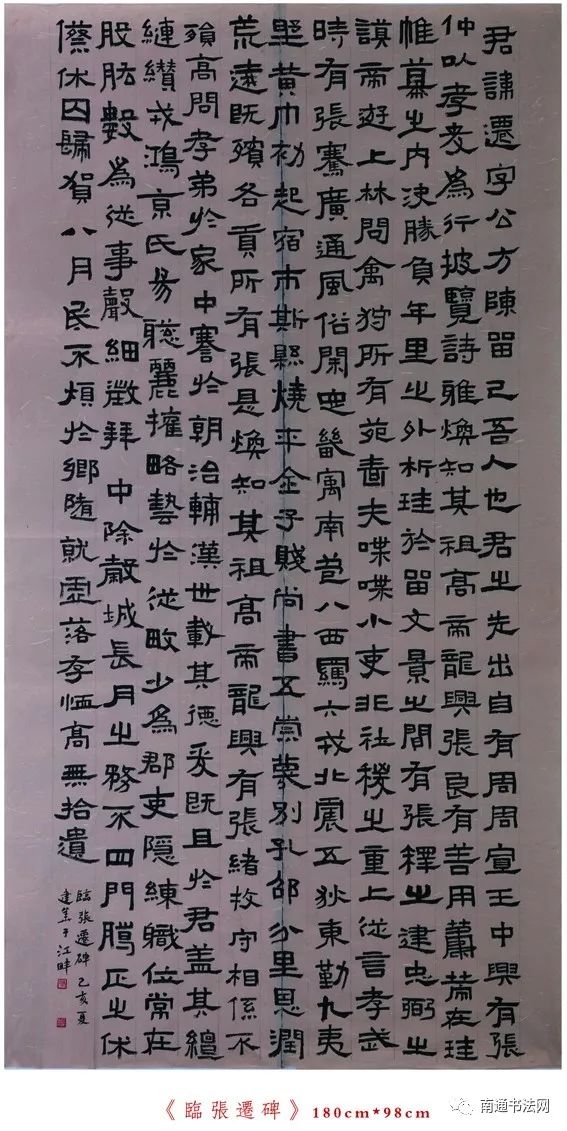 君諱遷字公方陳留己吾人也君之先出自有周周宣王中興有張
仲以孝友為行披覽詩雅煥知其祖高帝龍興張良有善用在珪
帷幕之内決勝負年里之外析珪於留文景之間有張釋之建忠弼之
謨帝遊上林問禽狩所有苑嗇夫喋喋小吏非社稷之重上從言孝武
時有張騫廣通風俗開定畿寓南苞八西羈六戎北震五狄東勤九夷
黃巾初起宿市斯縣燒平金子賤尚書五別孔部分里恩潤
荒遠既殯各貢所有張是煥知其祖高帝龍興有張緒牧守相係不
殞高問孝弟於家中謇於朝治輔漢世載其德爰既且於君蓋其繵
縺纘戎鴻京氏易聰麗權略藝於從畋少為郡吏隱練職位常在
股肱數為從事聲細徵拜中除穀城長月之務不四門騰正之休
休囚歸賀八月民不煩於鄉隨就虛落存恤高無拾遺
臨張遷碑己亥夏
建于江畔
《臨張遷碑》180cm*98cm
南通书法网